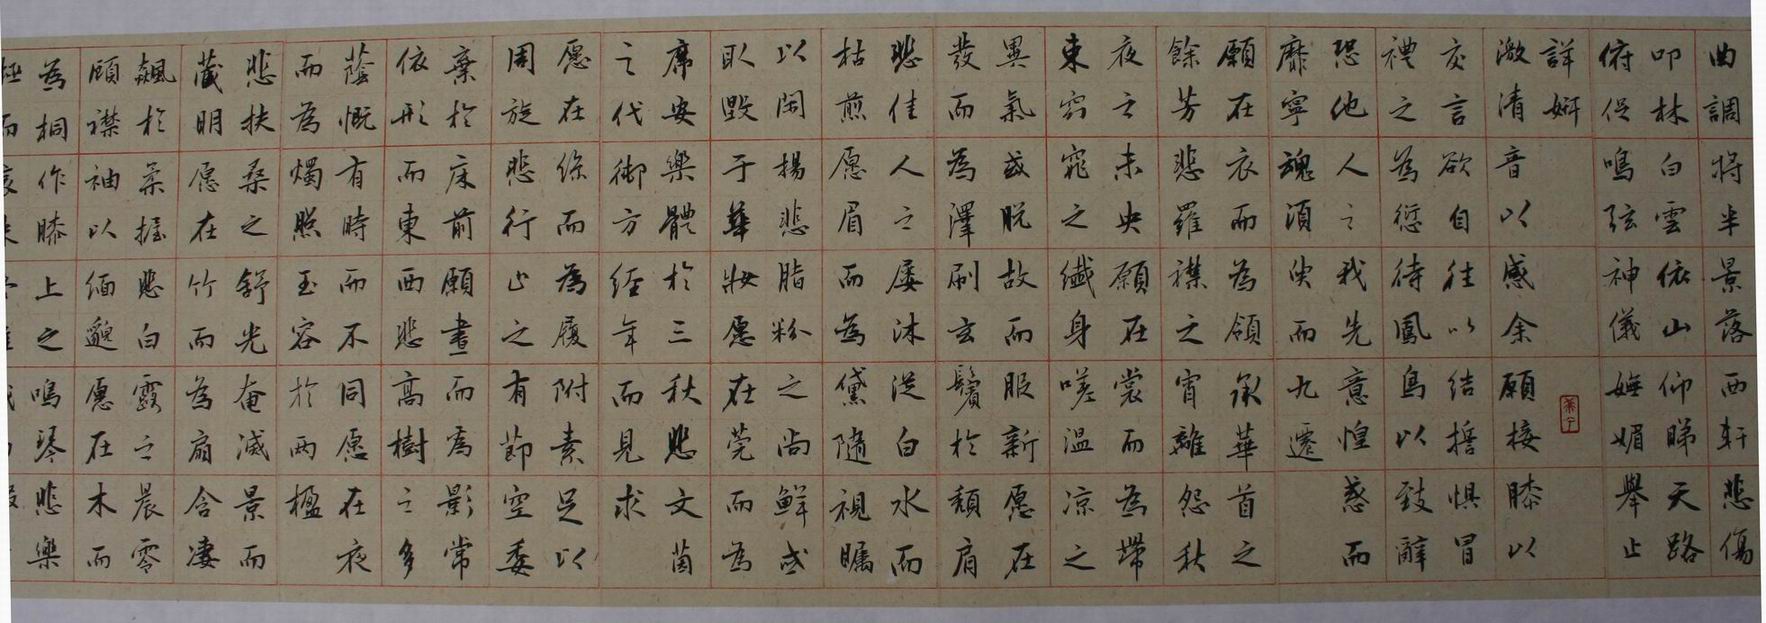 曲調將半景落西軒悲傷
叩林白雲依山仰睇天路
俯促鳴弦神儀嫵媚舉止
詳妍
激清音以感余願接膝以
交言欲自往以結誓懼冒
禮之為愆待鳳鳥以致辭
恐他人之我先意惶惑而
靡寧魂須臾而九遷
願在衣而為領承華首之
餘芳悲羅襟之宵離怨秋
夜之未央願在裳而為帶
束窈窕之纖身嗟溫涼之
異氣或脫故而服新愿在
發而為澤刷玄鬢於頹肩
悲佳人之屢沐從白水而
枯煎愿眉而為黛隨視瞩
以閑揚悲脂粉之尚鮮或
取毀于華妝愿在莞而為
席安樂體於三秋悲文茵
之代御方經年而見求
愿在絲而為履附素足以
周旋悲行止之有節空委
棄於床前願晝而為影常
依形而東西悲高樹之多
蔭慨有時而不同愿在夜
而為燭照玉容於兩楹
悲扶桑之舒光奄滅景而
藏明愿在竹而為扇含淒
飆於柔握悲白露之晨零
顧襟袖以緬邈愿在木而
為桐作膝上之鳴琴悲樂